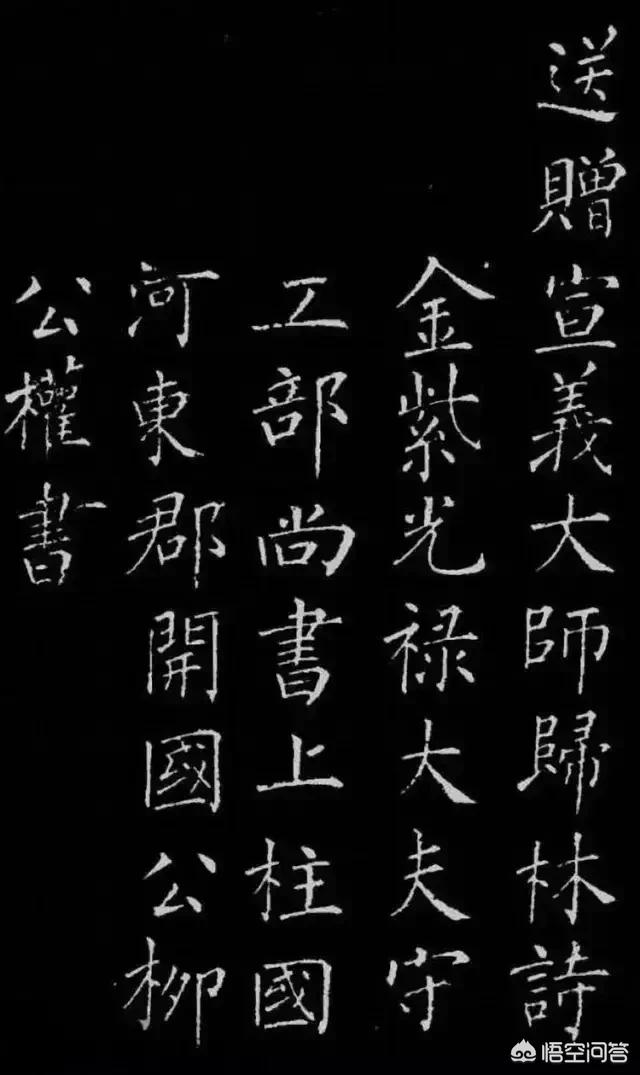 送贈宣義大師歸林詩
金紫光禄大夫守
工部尚書上柱國
河東郡開國公柳
公權書
悟空问答